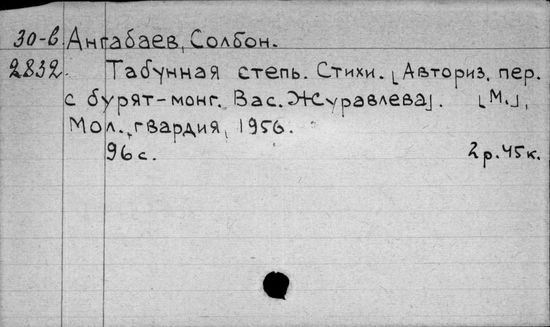 30-в Ангабаев, Солбон.
2832. Табунная степь. Стихи. [Авториз. пер.
с бурят-монг. Вас. Журавлева]. [М.],
Мол. гвардия, 1956.
96 с. 2 р. 45 к.